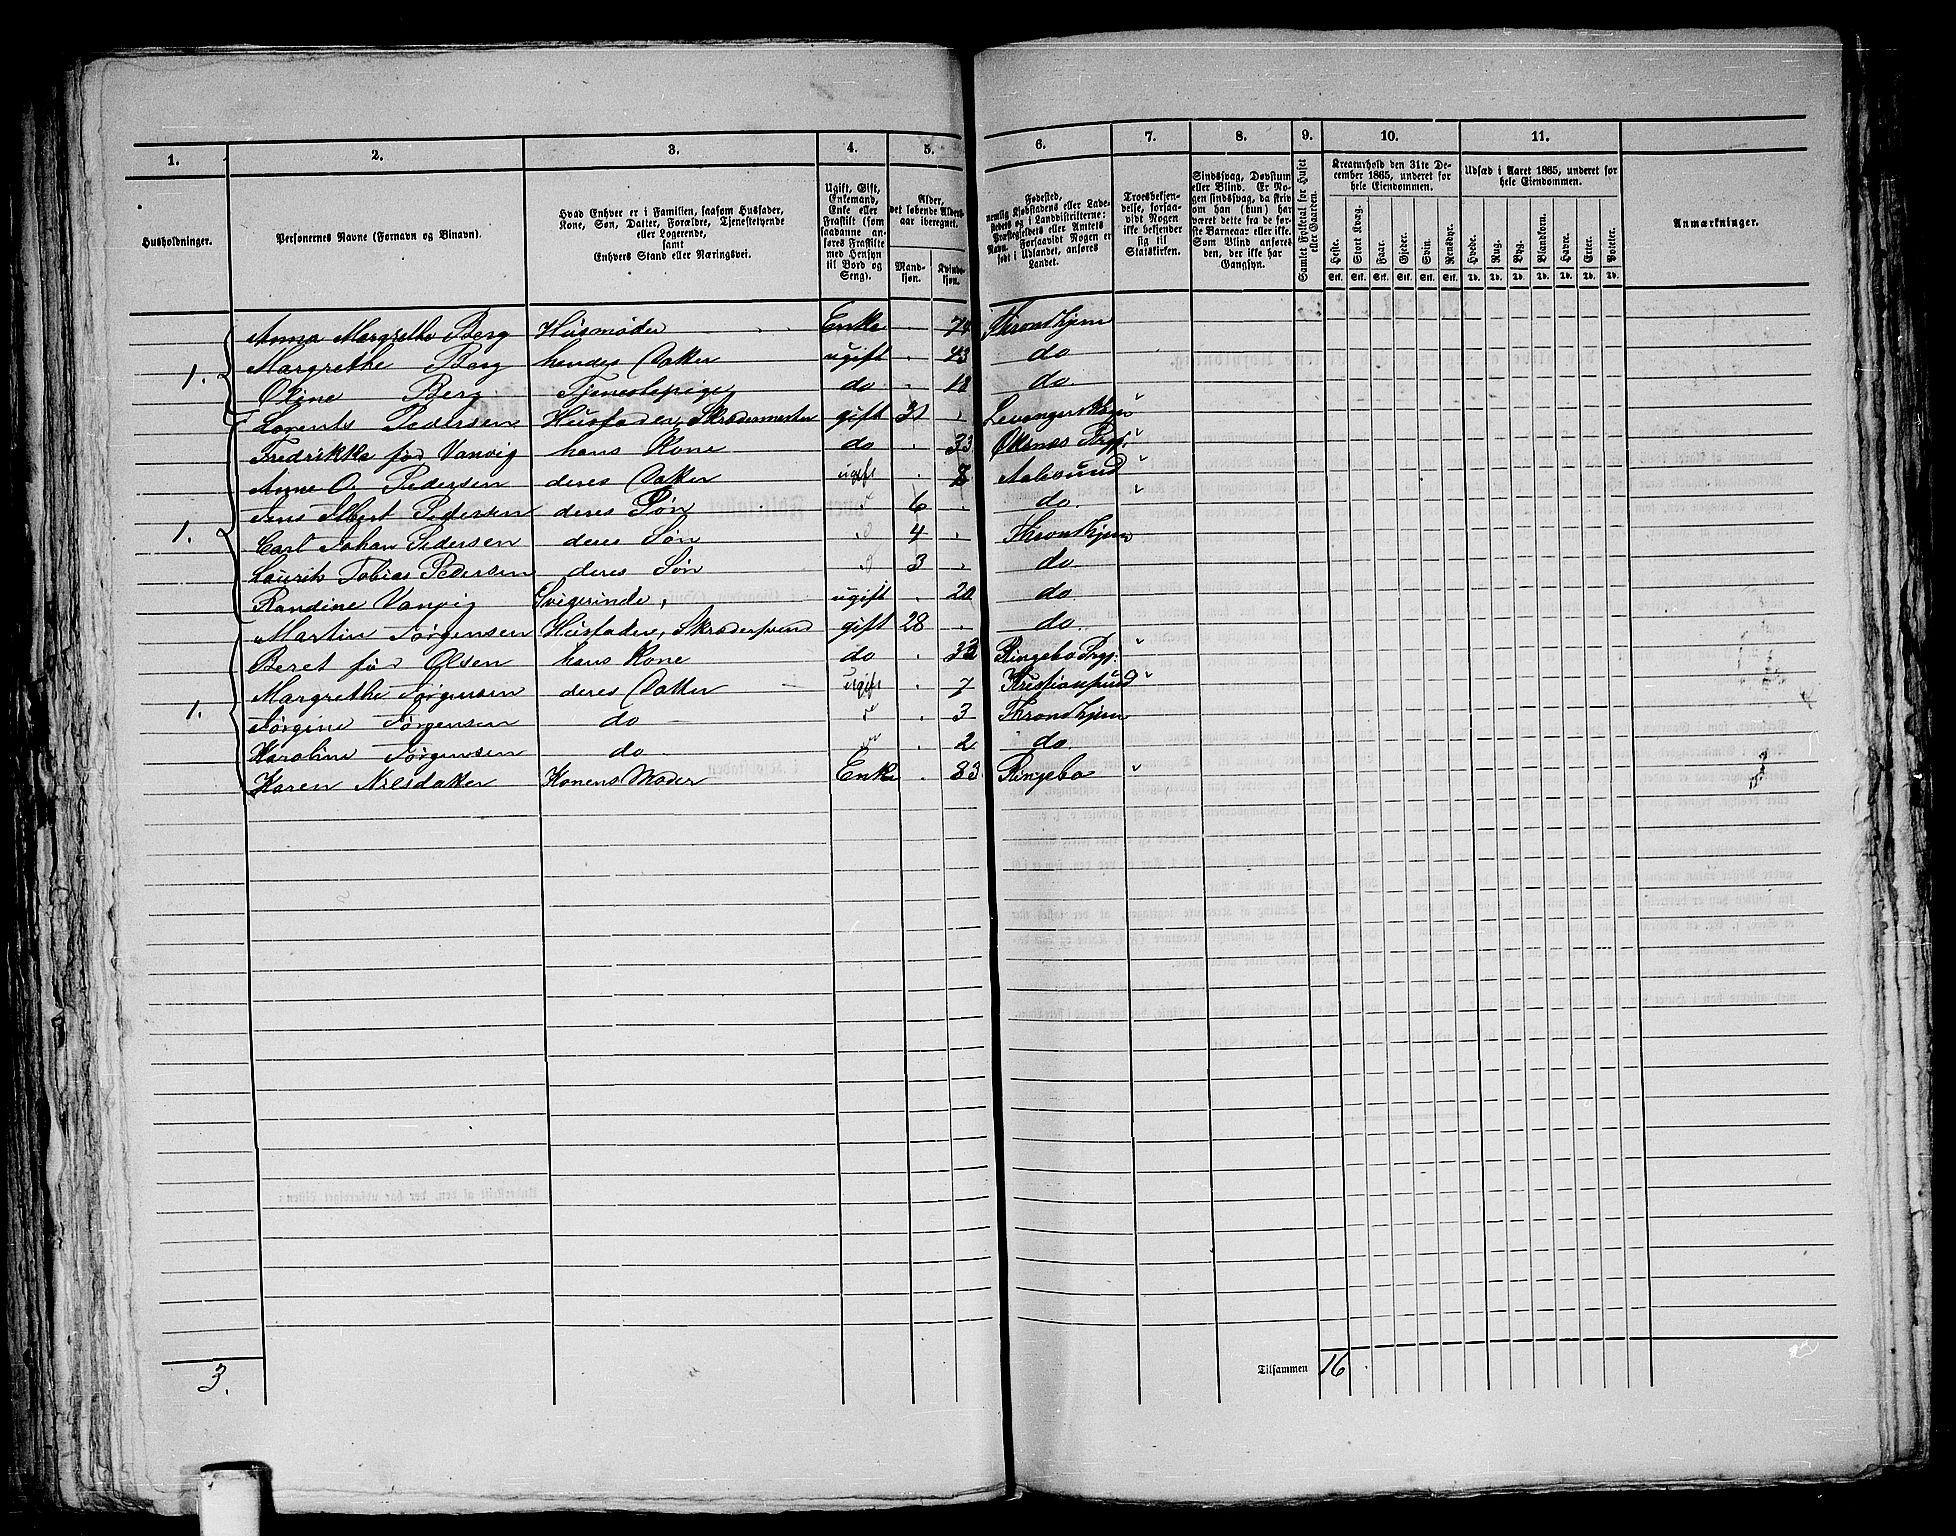 1. 2. 3. 4. 5. 6. 7. 8. 9. 10. 11.
Husholdninger.
Personernes Navne (Fornavn og Binavn).
Hvad Enhver er i Familien, saasom Husfader,
Kone, Søn, Datter, Forældre, Tjenestetyende
eller Logerende,
samt
Enhvers Stand eller Næringsvei.
Ugift, Gift,
Enkemand,
Enke eller
Fraskilt (som
saadanne an-
føres Fraskilte
med Hensyn
til Bord og
Seng).
Alder,
det løbende Alders-
aar iberegnet.
Mand-
kjøn. Kvinde-
kjøn.
Fødested,
nemlig Kjøbstadens eller Lade-
stedets og i Landdistrikterne:
Præstegjeldets eller Amtets
Navn. Forsaavidt Nogen er
født i Udlandet, anføres
Landet.
Troesbekjen-
delse, forsaa-
vidt Nogen
ikke bekjender
sig til
Statskirken.
Sindssvag, Døvstum
eller Blind. Er No-
gen sindssvag, da skriv
om han (hun) har
været dette fra de før-
ste Barneaar eller ikke.
Som Blind anføres
den, der ikke har
Gangsyn.
Samlet Folketal for Huset
eller Gaarden.
Kreaturhold den 31te De-
cember 1865, underet for
hele Eiendommen.
Heste. Stort Kvæg. Faar. Gjeder. Svin. Rensdyr.
Stk. Stk. Stk. Stk. Stk. Stk.
Udsæd i Aaret 1865, underet for
hele Eiendommen.
Hvede. Rug. Byg. Blandkorn. Havre. Erter. Poteter.
Td. Td. Td. Td. Td. Td. Td.
Anmærkninger.
Anna Margrethe Berg Husmoder Enke 74 Throndhjem
1. Margrethe Berg hendes Datter ugift 43 do
Oline Berg Tjenestepige do 18 do
Lorents Pedersen Husfader, Skrædermester gift 31 Levanger
Fredrikke fød Vanvig hans Kone do 33 Øksnæs Prgj.
Anne O. Pedersen deres Datter ugift 8 Aalesund
Jens Albert Pedersen deres Søn 6 do.
1. Carl Johan Pedersen deres Søn 4 Throndhjem
Laurits Tobias Pedersen deres Søn 3 do
Randine Vanvig Svigerinde, ugift 20 do
Martin Jørgensen Husfader, Skrædersvend gift 28 do.
Beret fød Olsen hans Kone do 33 Ringebo Prgj.
Margrethe Jørgensen deres Datter ugift 7 Kristiansund
1. Jørgine Jørgensen do 3 Throndhjem
Karoline Jørgensen do 2 do.
Karen Nilsdatter Konens Moder Enke 83 Ringebo
3. Tilsammen 16